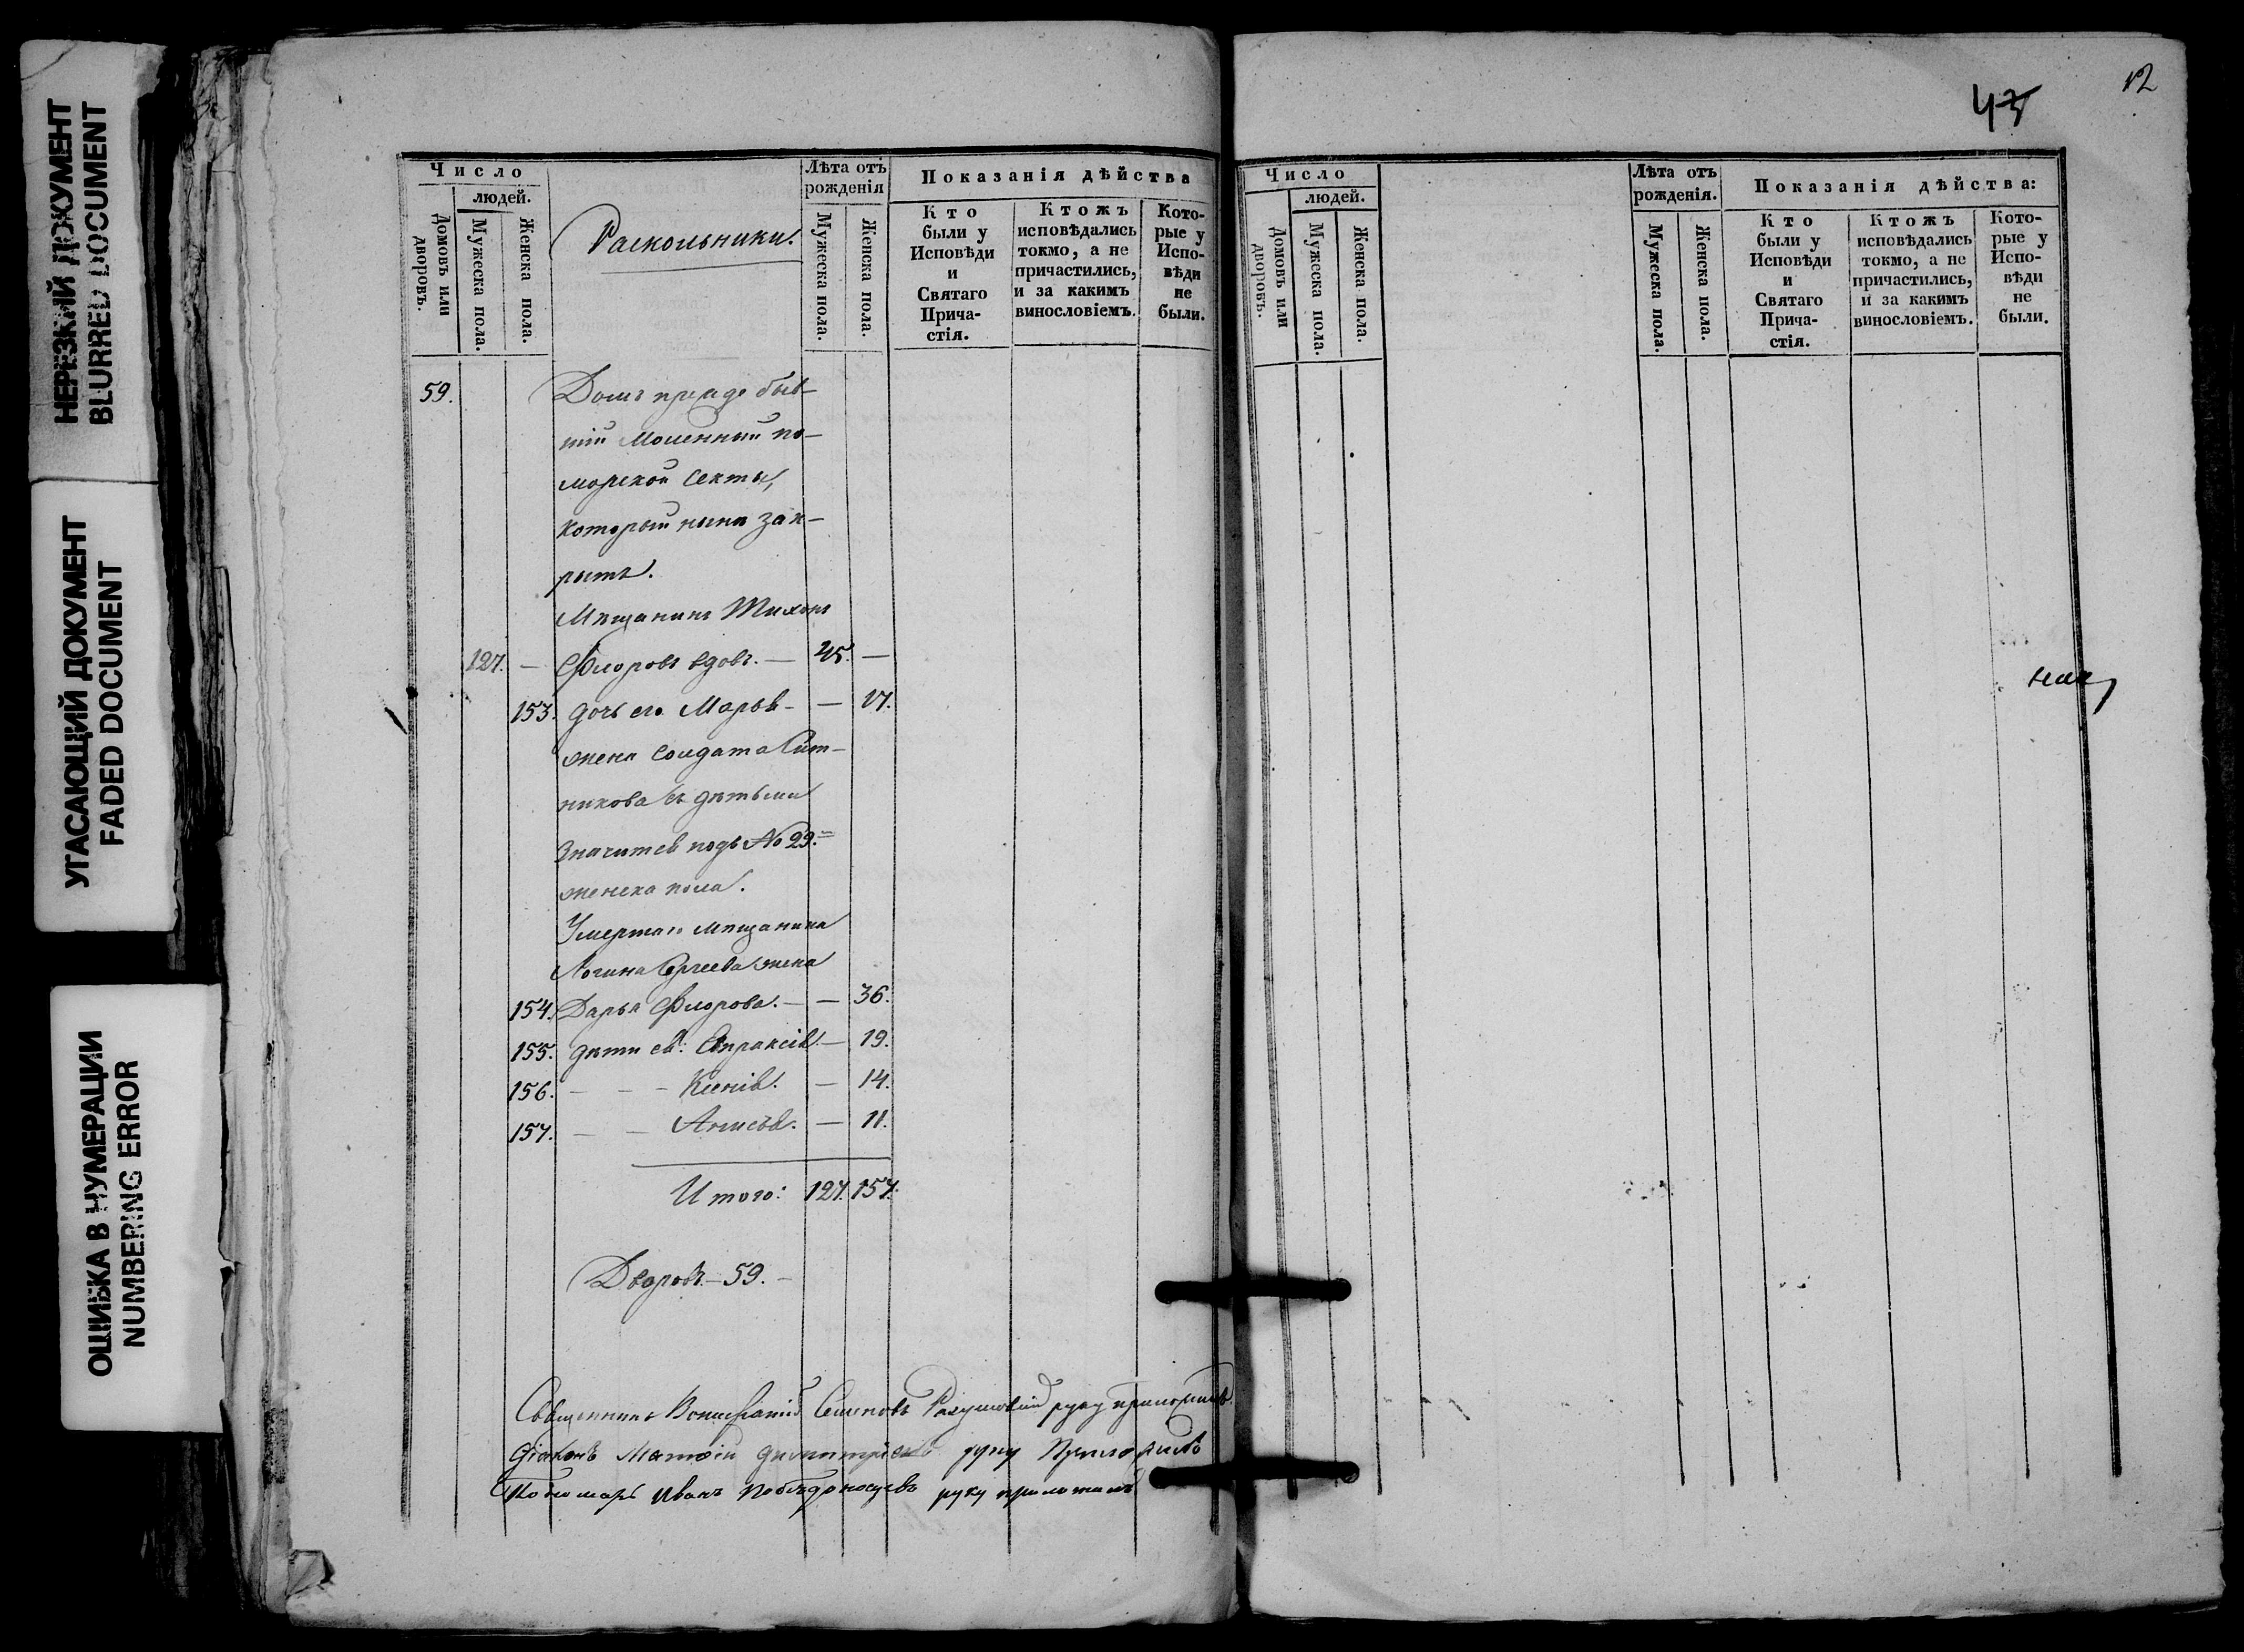 НЕРЕЗКИЙ ДОКУМЕНТ
BLURRED DOCUMENT
УГАСАЮЩИЙ ДОКУМЕНТ
FADED DOCUMENT
ОШИБКА В НУМЕРАЦИИ
NUMBERING ERROR
Число
людей.
Домовъ или дворовъ.
Мужеска пола.
Женска пола.
Раскольники.
Лѣта отъ рожденія
Мужеска пола.
Женска пола.
Показанія дѣйства
Кто были у Исповѣди и Святаго Прича-стія.
Ктожъ исповѣдались токмо, а не причастились, и за какимъ винословіемъ.
Кото-рые у Испо-вѣди не были.
59. Домъ прежде быв-
шій Моленный по-
морской секты,
который нынѣ зак-
рытъ.
Мѣщанинъ Тихонъ
127. — Флоровъ вдовъ. — 45. —
153. дочь его Марья — — 17.
жена солдата Сит-
никова съ дѣтьми
значится подъ № 29.
женска пола.
Умершаго мѣщанина
Логина Сергеева жена
154. Дарья Флорова. — — 36.
155. дѣти ея: Евпраксія — 19.
156. — — — Ксенія. — 14.
157. — — Анисья. — 11.
Итого: 127. 157.
Дворовъ — 59. —
Священникъ Семеновъ руку приложилъ.
Діаконъ Матѳій Димитріевъ руку Приложилъ
Пономарь Иванъ Побѣдоносцевъ руку приложилъ
12
Число
людей.
Домовъ или дворовъ.
Мужеска пола.
Женска пола.
Лѣта отъ рожденія.
Мужеска пола.
Женска пола.
Показанія дѣйства:
Кто были у Исповѣди и Святаго Прича-стія.
Ктожъ исповѣдались токмо, а не причастились, и за какимъ винословіемъ.
Кото-рые у Испо-вѣди не были.